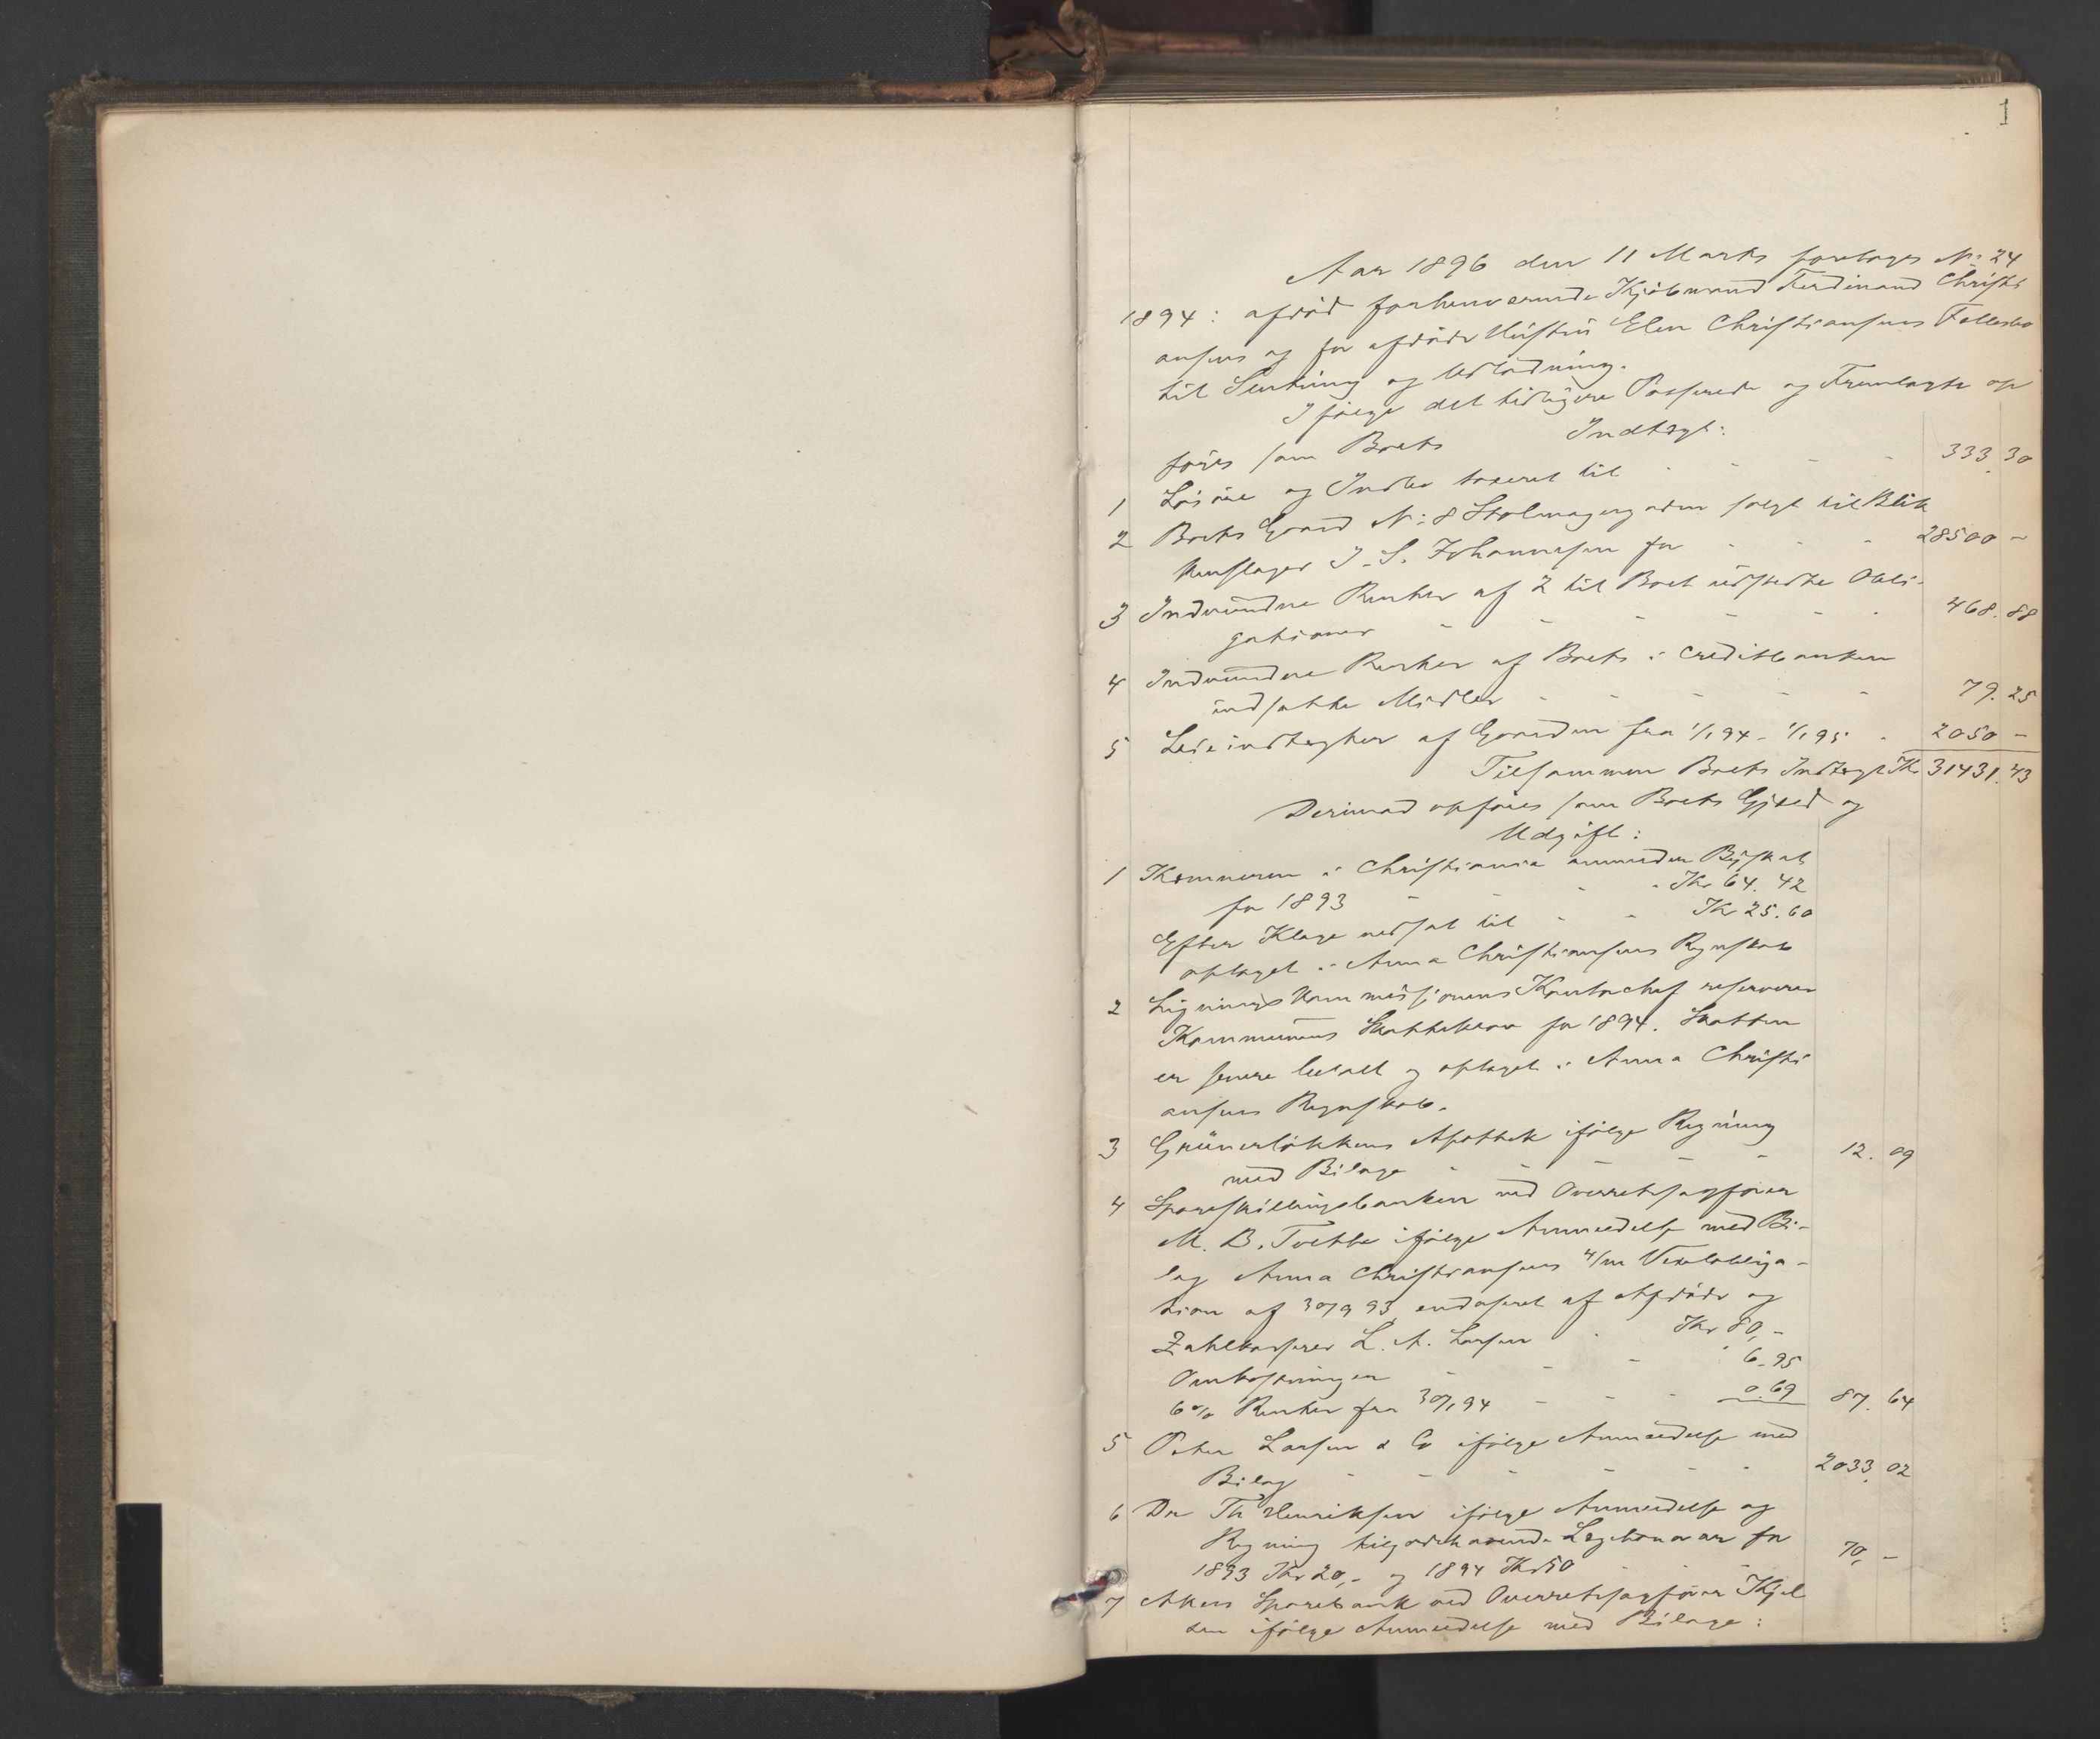 1
Aar 1896 den 11 Marts foretoges No 24
1894: afdød forhenværende Kjøbmand Ferdinand Christi
ansens og før afdøde Hustru Elen Christiansens Fællesbo
til Slutning og Udlodning.
Ifølge det tidligere Passerede og Fremlagte op
føres som Boets Indtægt:
1 Løsøre og Indbo taxeret til - - - - 333.30
2 Boets Gaard No: 8 Stolmagergaden solgt til Blik
kenslager J. S. Johannesen for - - - 28500 -
3 Indvundne Renter af 2 til Boet udstedte Obli-
gationer - - - - - - 468.88
4 Indvundne Renter af Boets i Creditbanken
indsatte Midler - - - - - 79.25
5 Leieindtægter af Gaarden fra 1/1 94 - 1/1 95 - 2050 -
Tilsammen Boets Indtægt Kr 31431.43
Derimod opføres som Boets Gjæld og
Udgift:
1 Kæmneren i Christiania anmelder Byskat
for 1893 - - - - Kr 64.42
Efter Klage nedsat til - - Kr 25.60
optaget i Anna Christiansens Regnskab
2 Ligningskommissjonens Kontorchef reserverer
Kommunens Skattekrav for 1894. Skatten
er senere betalt og optaget i Anna Christi
ansens Regnskab.
3 Grünerløkkens Apothek ifølge Regning
med Bilage - - - - - 12.09
4 Spareskillingsbanken ved Overretssagfører
M. B. Tvethe ifølge Anmeldelse med Bi-
lag Anna Christiansens 4/m Vexelobliga-
tion af 30/9 93 endosseret af Afdøde og
Zahlkasserer L. A. Larsen - Kr 80,-
Omkostninger - - - " 6.95
6% Renter fra 30/1 94 - - - 0.69 87.64
5 Peter Larsen & Co ifølge Anmeldelse med
Bilag - - - - - - 2033.02
6 Dr Th Henriksen ifølge Anmeldelse og
Regning tilgodehavende Lægehonorar for
1893 Kr 20,- og 1894 Kr 50 - - - 70,-
7 Akers Sparebank ved Overretssagfører Kjel
sen ifølge Anmeldelse med Bilage: